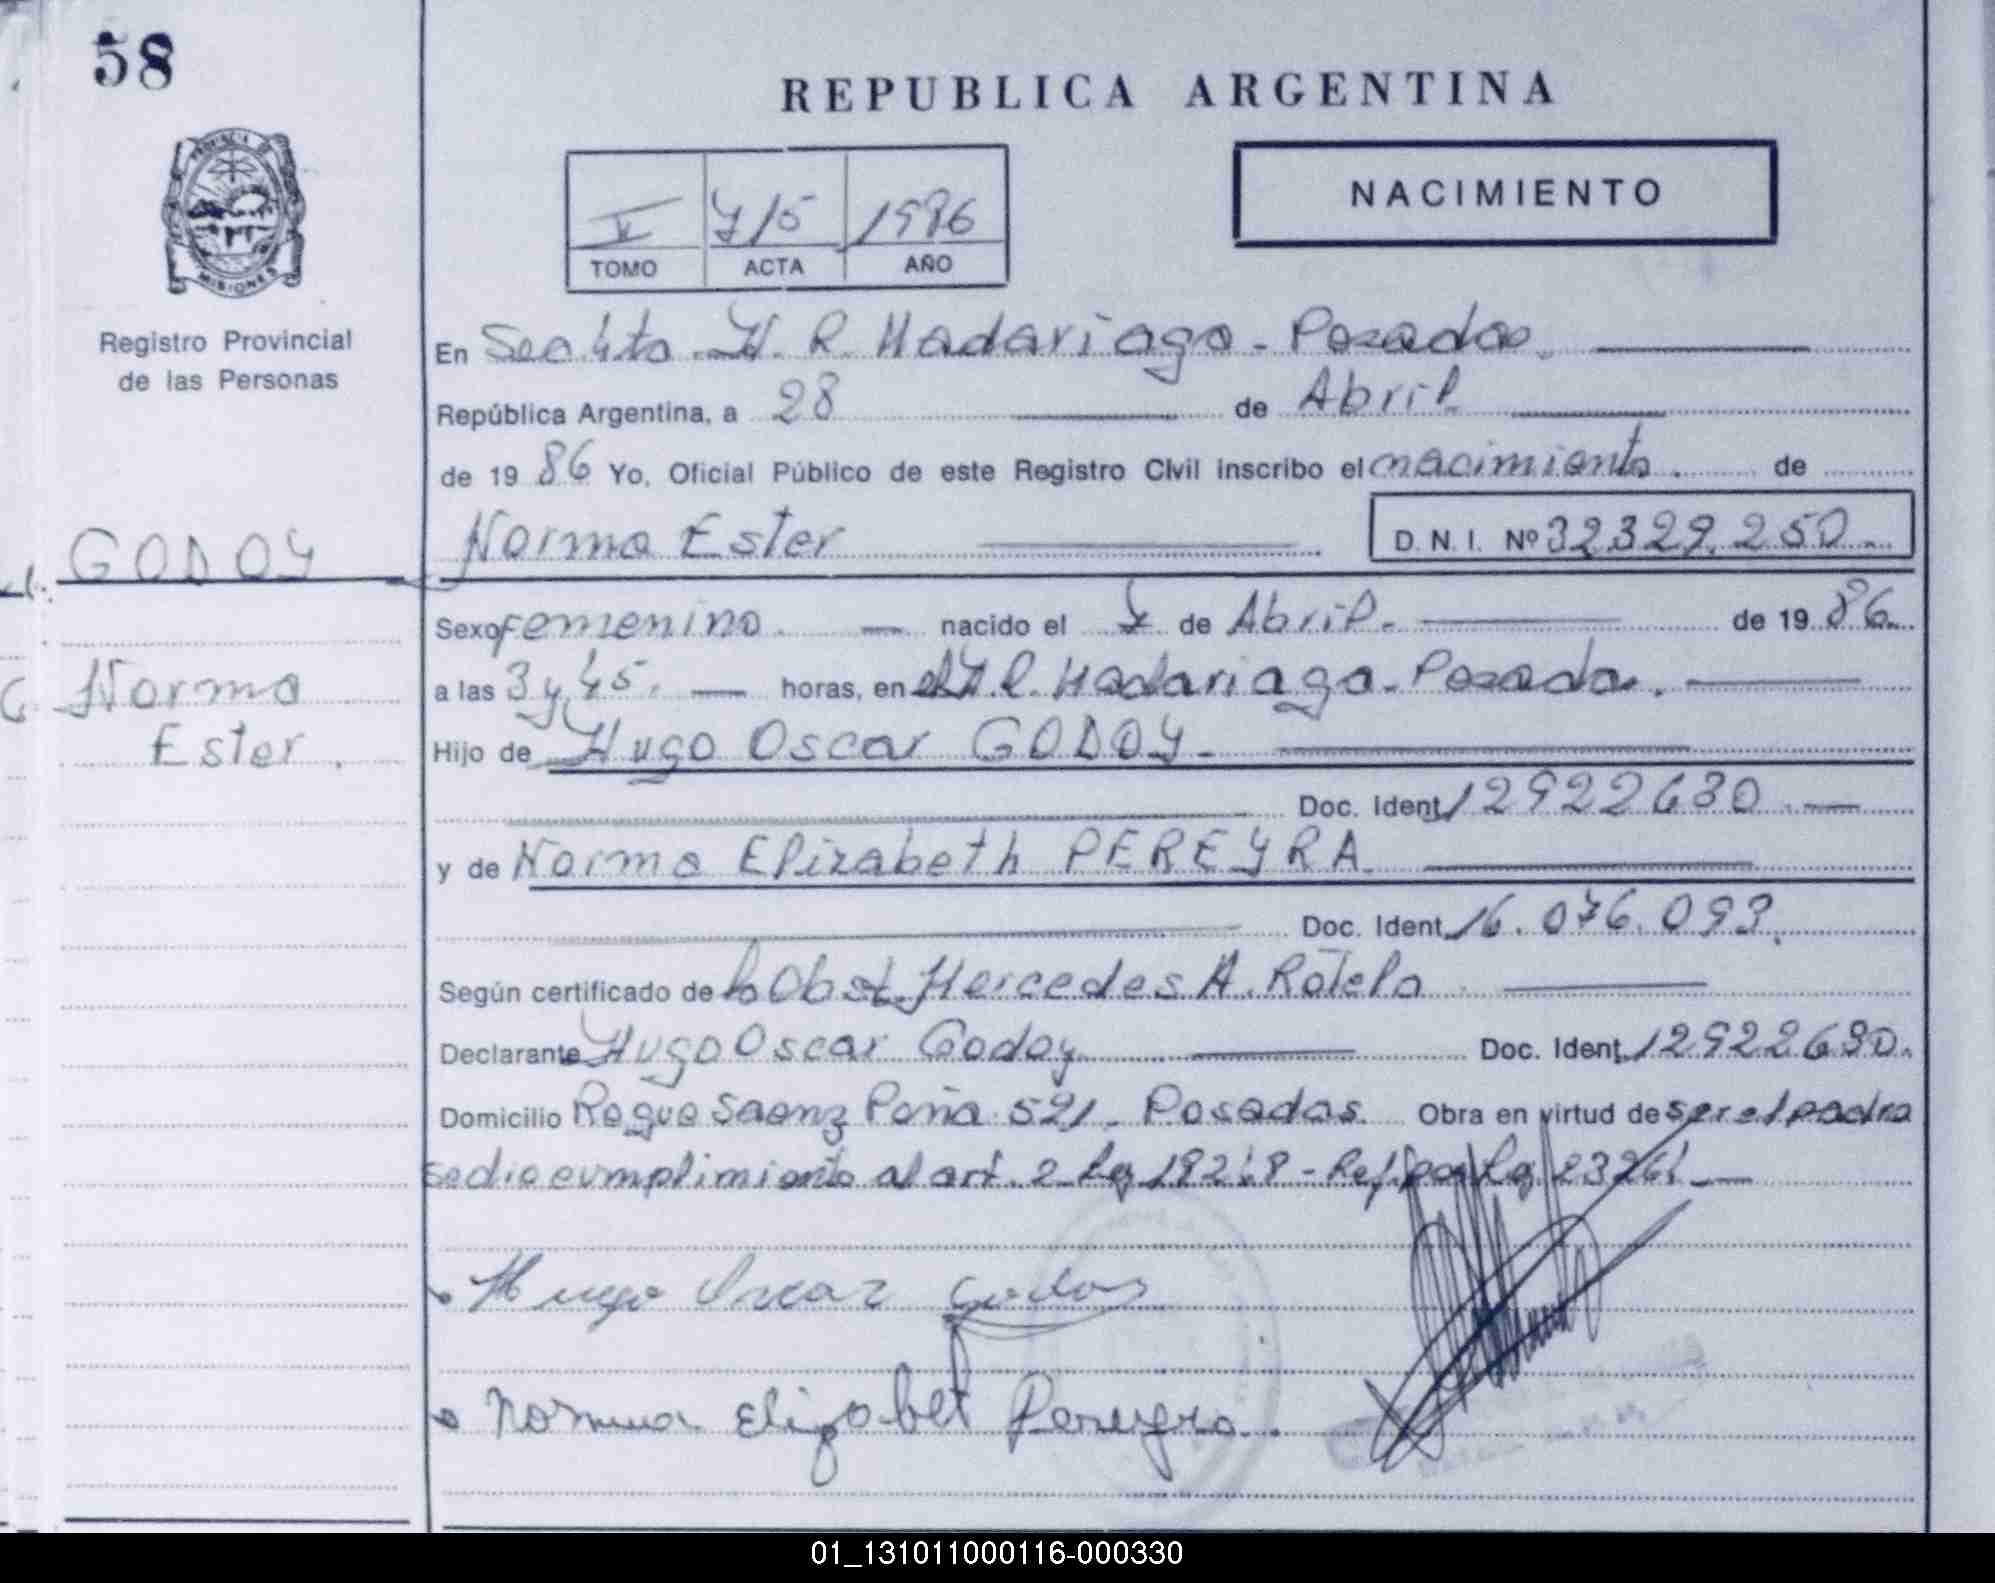 58
REPUBLICA ARGENTINA
PROVINCIA DE
MISIONES
NACIMIENTO
V 715 1986
TOMO ACTA AÑO
Registro Provincial
de las Personas
En Sec 4ta. H. R. Madariaga - Posadas.
República Argentina, a 28 de Abril
de 19 86 Yo, Oficial Público de este Registro Civil inscribo el nacimiento. de
Norma Ester D.N.I. Nº 32.329.250
GODOY
Sexo femenino. nacido el 7 de Abril. de 19 86.
a las 3 y 45. horas, en el H. R. Madariaga - Posadas.
Norma
Ester.
Hijo de Hugo Oscar GODOY -
Doc. Ident. 12922630
y de Norma Elizabeth PEREYRA
Doc. Ident. 16.076.093.
Según certificado de la Obst. Mercedes A. Rotela
Declarante Hugo Oscar Godoy Doc. Ident. 12922630.
Domicilio Roque Saenz Peña 521 - Posadas. Obra en virtud de ser el padre
se dio cumplimiento al art. 2 Ley 18248 - Ref. por Ley 23264
Hugo Oscar Godoy
Norma Elizabet Pereyra.
01_131011000116-000330